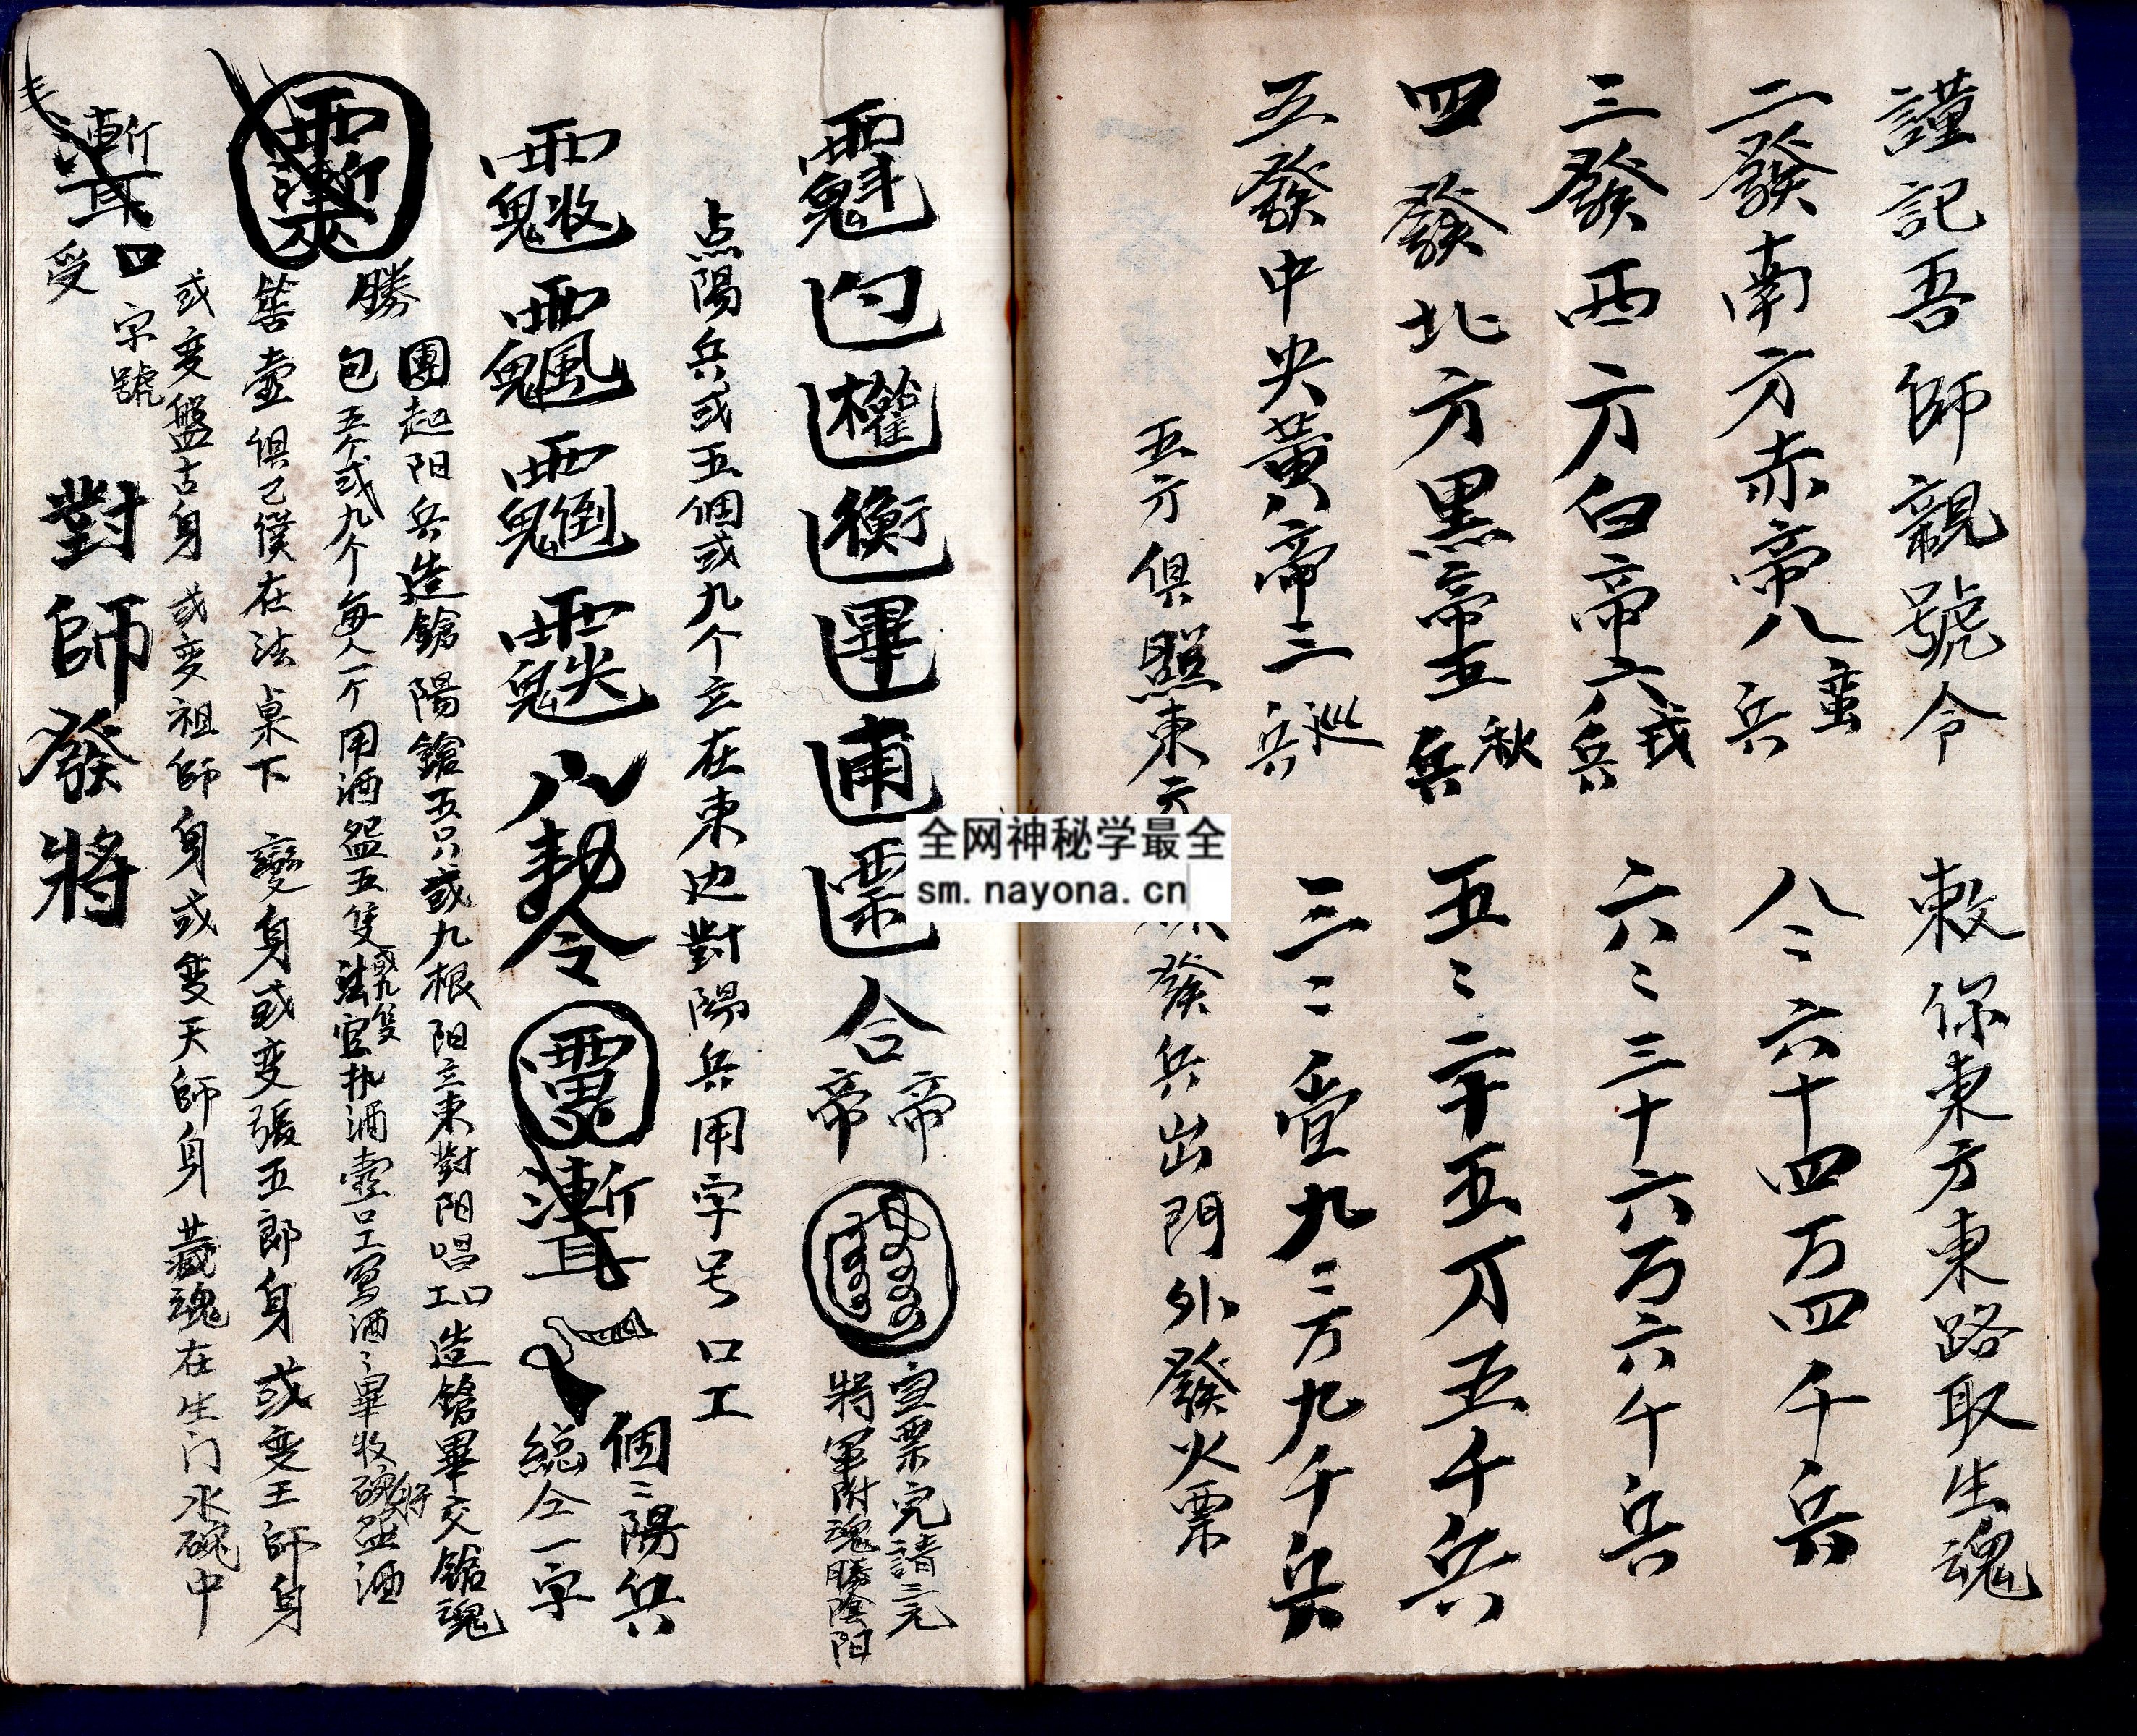 謹記吾師親號令 敕你東方東路取生魂
二發南方赤帝八蛮兵 八〻六十四万四千兵
三發西方白帝六戎兵 六〻三十六万六千兵
四發北方黑帝五秋兵 五〻二十五万五千兵
五發中央黃帝三巡兵 三〻壹九〻万九千兵
五方俱照東 發兵出門外發火票
全网神秘学最全
sm.nayona.cn
合帝帝 宣票完請三元將軍附魂勝陰阳
点陽兵或五個或九个立在東边對陽兵用字号口工
八勅令 個〻陽兵總仝一字
團起阳兵造鎗陽鎗五只或九根阳立東對阳唱工口造鎗畢交鎗魂
勝包五个或九个每人一个用酒盌五隻或九隻法官执酒壺口工寫酒〻畢收碗將盌酒
筶壺俱己僕在法桌下 變身或变張五郎身或变王師身
或变盤古身或变祖師身或变天師身 藏魂在生门水碗中
受口字號 對師發將